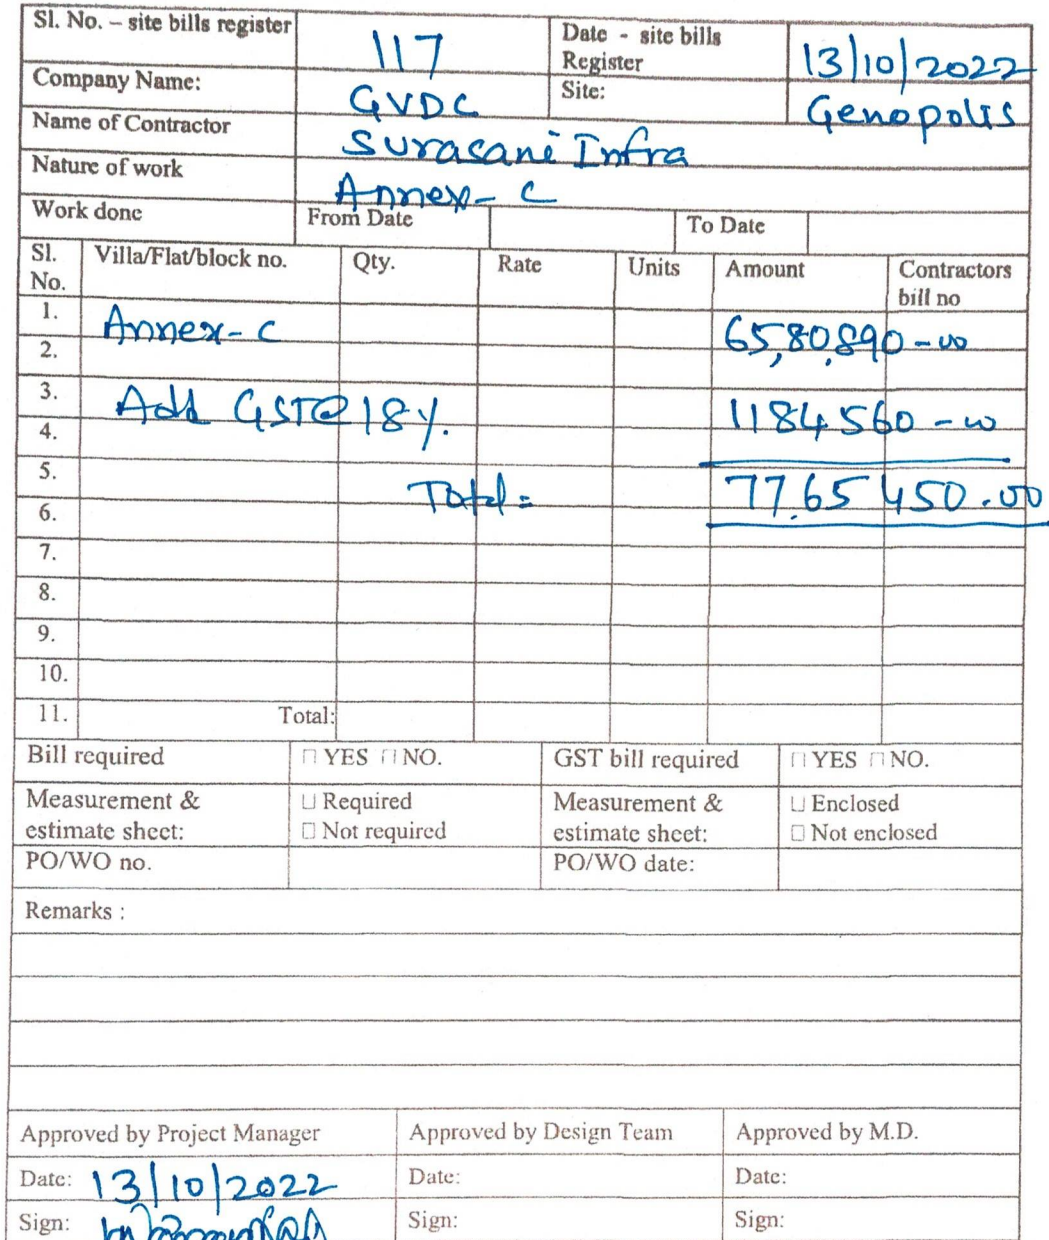 Sl. No. – site bills register 117 Date - site bills Register 13/10/2022
Company Name: GVDC Site: Genopolis
Name of Contractor Surasani Infra
Nature of work Annex- C
Work done From Date To Date
Sl. No. Villa/Flat/block no. Qty. Rate Units Amount Contractors bill no
1. Annex- C 65,80,890-00
2.
3. Add GST@18%. 1184560-00
4.
5. Total= 77,65 450.00
6.
7.
8.
9.
10.
11. Total:
Bill required □ YES □ NO. GST bill required □ YES □ NO.
Measurement & estimate sheet: □ Required □ Not required Measurement & estimate sheet: □ Enclosed □ Not enclosed
PO/WO no. PO/WO date:
Remarks :
Approved by Project Manager Approved by Design Team Approved by M.D.
Date: 13/10/2022 Date: Date:
Sign: Sign: Sign: